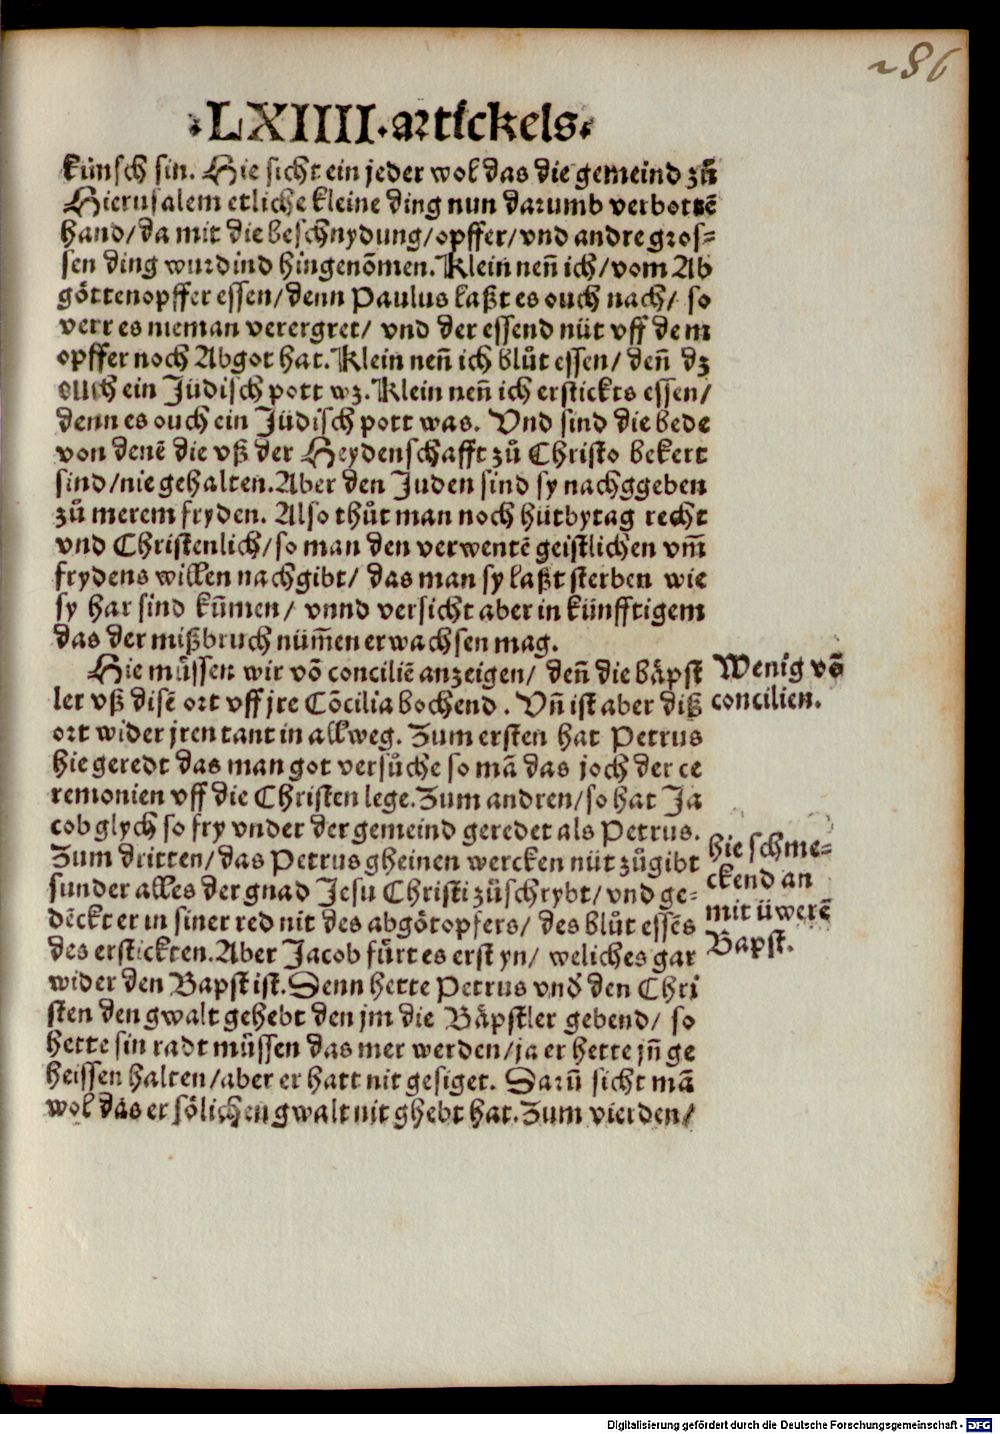 286
·LXIIII·artickels·
künsch sin. Hie sicht ein jeder wol das die gemeind zů
Hierusalem etliche kleine ding nun darumb verbottē
hand/da mit die beschnydung/opffer/vnd andre gros⸗
sen ding wurdind hingenōmen. Klein nen̄ ich/vom Ab
göttenopffer essen/denn Paulus laßt es ouch nach/ so
verr es nieman verergret/ vnd der essend nüt vff dem
opffer noch Abgot hat. Klein nen̄ ich blůt essen/ den̄ dz
ouch ein Jüdisch pott wz. Klein nen̄ ich ersticks essen/
denn es ouch ein Jüdisch pott was. Vnd sind die bede
von denē die vß der Heydenschafft zů Christo bekert
sind/nie gehalten. Aber den Juden sind sy nachggeben
zů merem fryden. Also thůt man noch hütbytag recht
vnd Christenlich/so man den verwentē geistlichen vm̄
frydens willen nachgibt/ das man sy laßt sterben wie
sy har sind kūmen/ vnnd versicht aber in künfftigem
das der mißbruch nüm̄en erwachsen mag.
Hie müssen wir vō conciliē anzeigen/ den̄ die bäpst
ler vß disē ort vff jre Cōcilia bochend. Vn̄ ist aber diß
ort wider jren tant in allweg. Zum ersten hat Petrus
hie geredt das man got versůche so mā das joch der ce
remonien vff die Christen lege. Zum andren/so hat Ja
cob glych so fry vnder der gemeind geredet als Petrus.
Zum dritten/das Petrus gheinen wercken nüt zůgibt
sunder alles der gnad Jesu Christi zůschrybt/vnd ge⸗
dēckt er in siner red nit des abgötopfers/ des blůt essēs
des erstickten. Aber Jacob fürt es erst yn/ weliches gar
wider den Bapst ist. Denn hette Petrus vnd̄ den Chri
sten den gwalt gehebt den jm die Bäpstler gebend/ so
hette sin radt müssen das mer werden/ja er hette jn̄ ge
heissen halten/aber er hatt nit gesiget. Darū sicht mā
wol das er sölichen gwalt nit ghebt hat. Zum vierden/
Wenig vō
concilien.
hie schme⸗
ckend an
mit üwerē
Bapst.
Digitalisierung gefördert durch die Deutsche Forschungsgemeinschaft - DFG